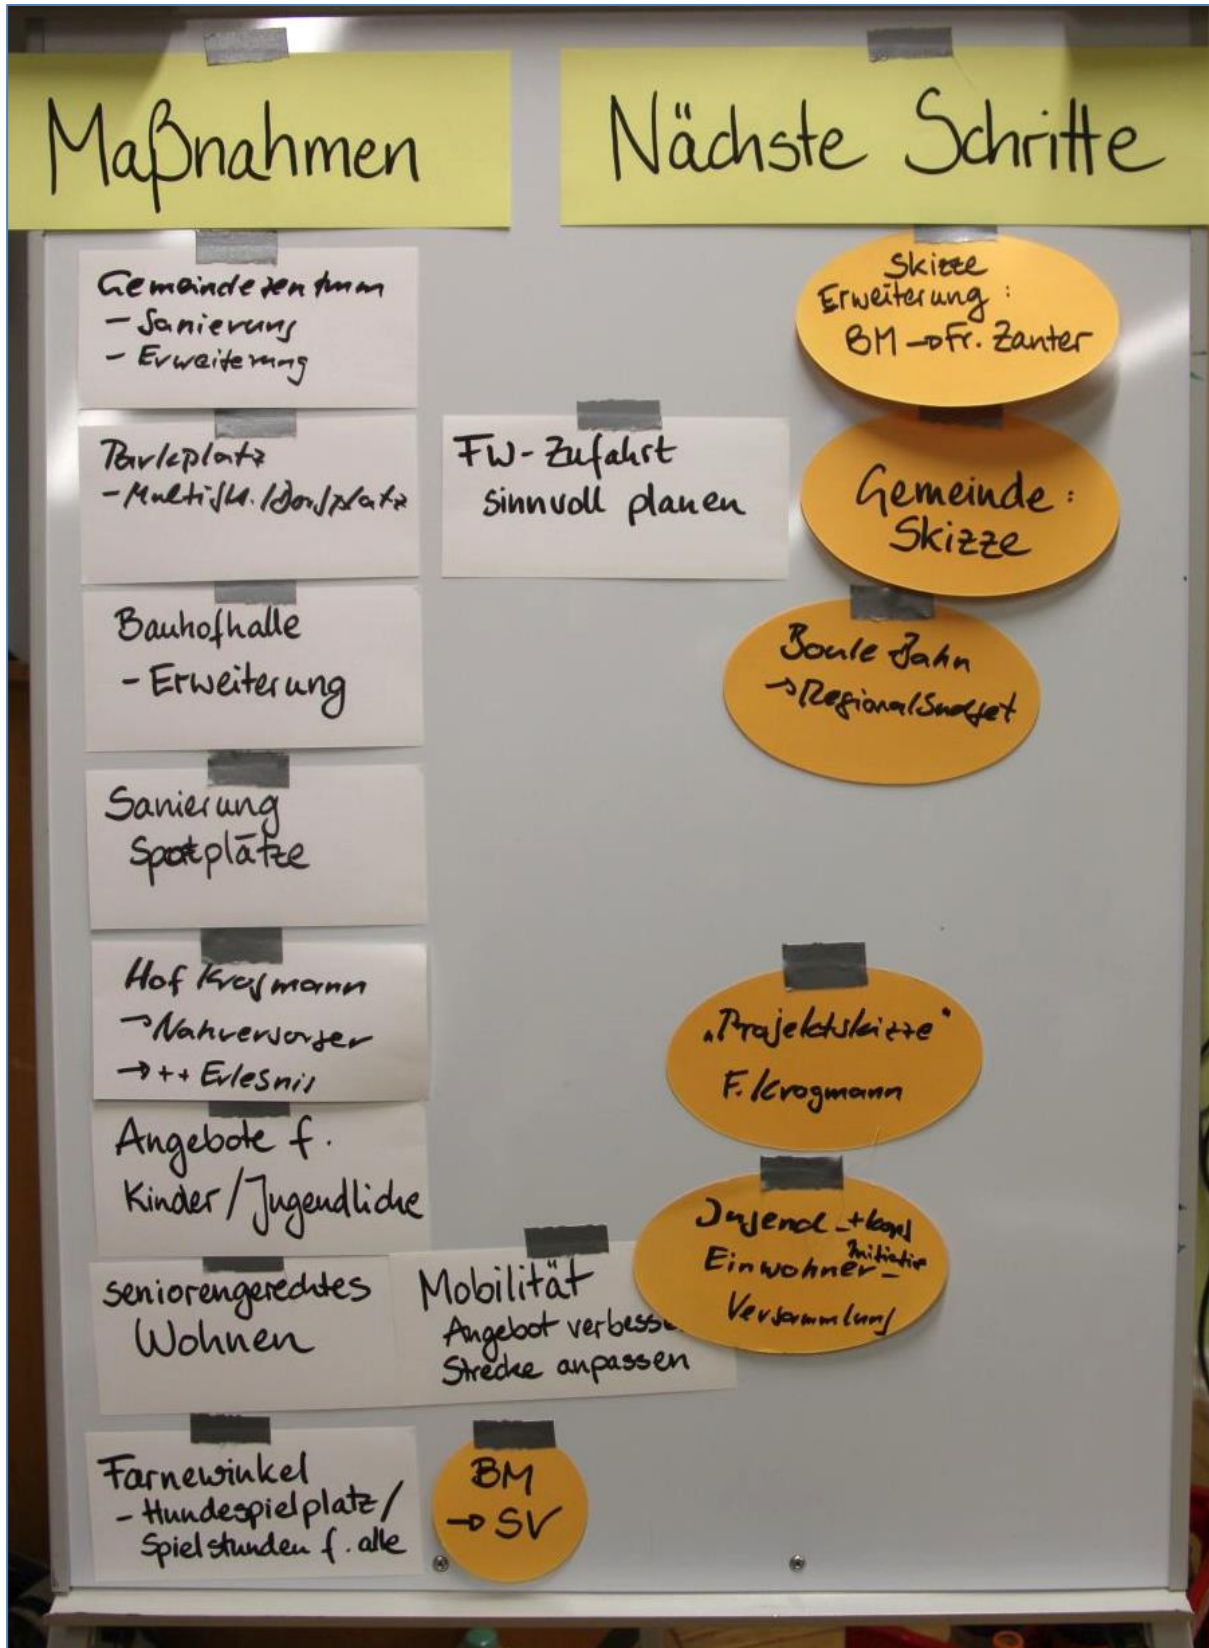 Maßnahmen
Nächste Schritte
Gemeindezentrum
- Sanierung
- Erweiterung
Skizze
Erweiterung :
BM → Fr. Zanter
Parkplatz
- Multifkt. /
FW-Zufahrt
sinnvoll planen
Gemeinde :
Skizze
Bauhofhalle
- Erweiterung
Boule Bahn
→ Regionalbudget
Sanierung
Sportplätze
Hof Krogmann
→ Nahversorger
→ ++ Erlebnis
„Projektskizze"
F. Krogmann
Angebote f.
Kinder/Jugendliche
Jugend - +
Initiative
Einwohner -
Versammlung
seniorengerechtes
Wohnen
Mobilität
Angebot verbess
Strecke anpassen
Farnewinkel
- Hundespielplatz/
Spielstunden f. alle
BM
→ SV